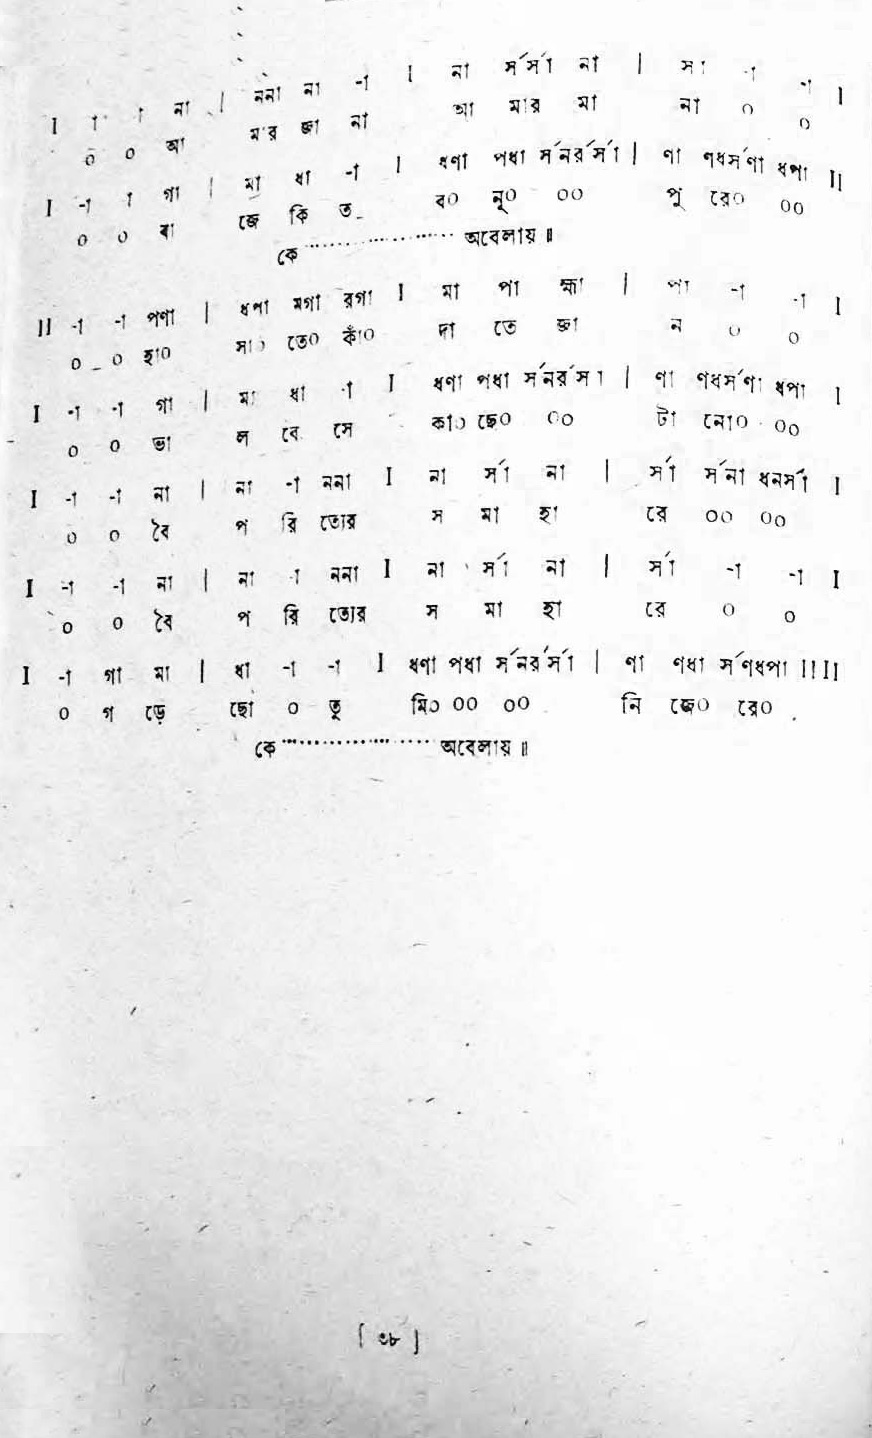 I -া -া না | ননা না -া I না র্সর্সা না | র্সা -া -া I
০ ০ আ মার জা না আ মার মা না ০ ০
I -া -া গা | মা ধা -া I ধণা পধা র্সনর্রর্সা | ণা ণধর্সণা ধপা II
০ ০ বা জে কি ত ব০ নূ০ ০০ পু রে০ ০০
কে ..................... অবেলায় ॥
II -া -া পণা | ধপা মগা রগা I মা পা হ্মা | পা -া -া I
০ ০ হা০ সা০ তে০ কাঁ০ দা তে জা ন ০ ০
I -া -া গা | মা ধা -া I ধণা পধা র্সনর্রর্সা | ণা ণধর্সণা ধপা I
০ ০ ভা ল বে সে কা০ ছে০ ০০ টা নো০ ০০
I -া -া না | না -া ননা I না র্সা না | র্সা র্সনা ধনর্সা I
০ ০ বৈ প রি ত্যের স মা হা রে ০০ ০০
I -া -া না | না -া ননা I না র্সা না | র্সা -া -া I
০ ০ বৈ প রি ত্যের স মা হা রে ০ ০
I -া গা মা | ধা -া -া I ধণা পধা র্সনর্রর্সা | ণা ণধা র্সণধপা II II
০ গ ড়ে ছো ০ তু মি০ ০০ ০০ নি জে০ রে০
কে ..................... অবেলায় ॥
[ ৩৮ ]